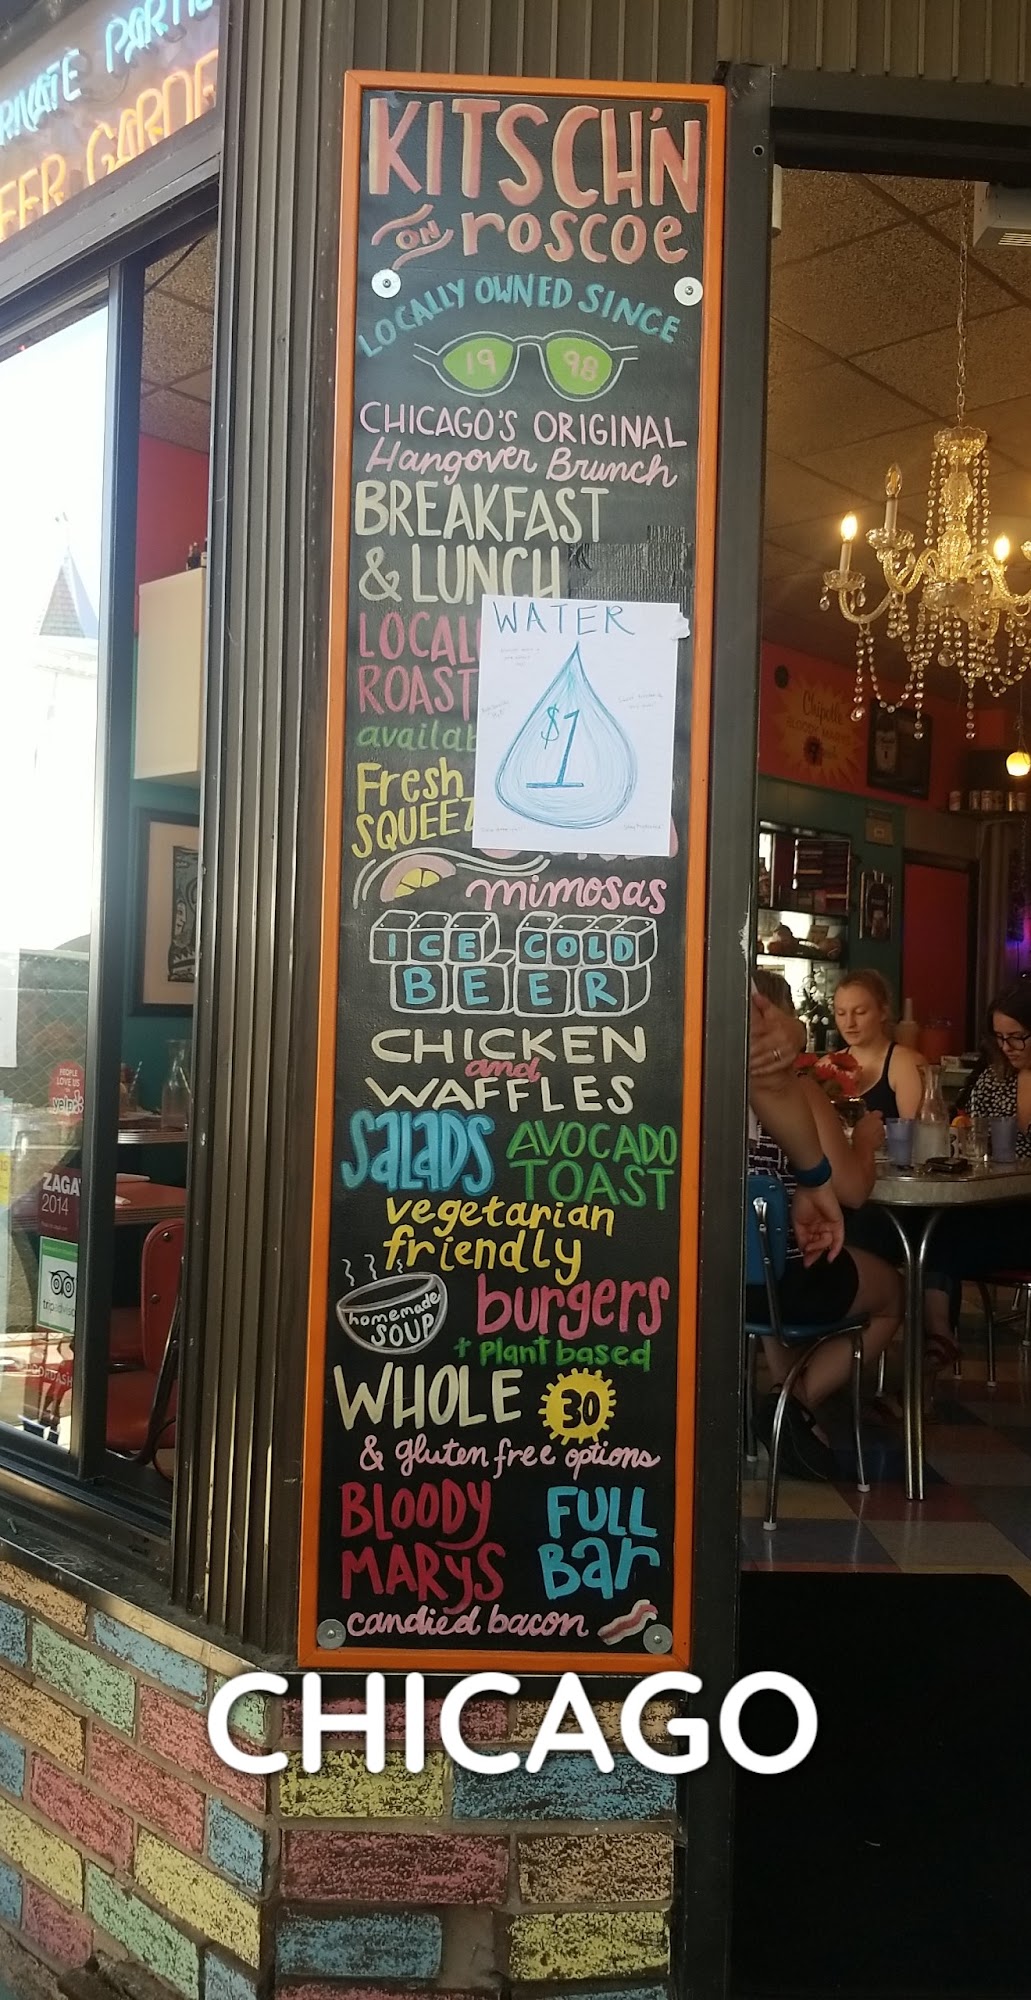 PRIVATE PARTIE
EER GARDE
KITSCH'N
ON roscoe
LOCALLY OWNED SINCE
19 98
CHICAGO'S ORIGINAL
Hangover Brunch
BREAKFAST
& LUNCH
LOCAL
ROAST
availab
Fresh
SQUEEZ
WATER
$1
mimosas
ICE COLD
BEER
CHICKEN
and
WAFFLES
SALADS
AVOCADO
TOAST
vegetarian
friendly
homemade
SOUP
burgers
+ Plant based
WHOLE 30
& gluten free options
BLOODY
MARYS
FULL
Bar
candied bacon
CHICAGO
PEOPLE
LOVE US
yelp
ZAGA
2014
Chipotle
BLOODY MARYS